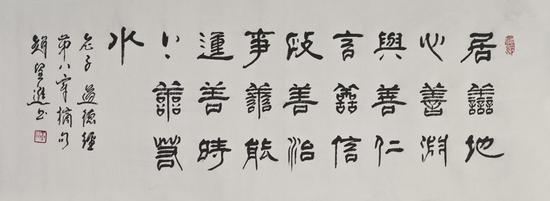 居善地
心善渊
與善仁
言善信
政善治
事善能
動善時
上善若
水
老子道德經
第八章摘句
趙望進书